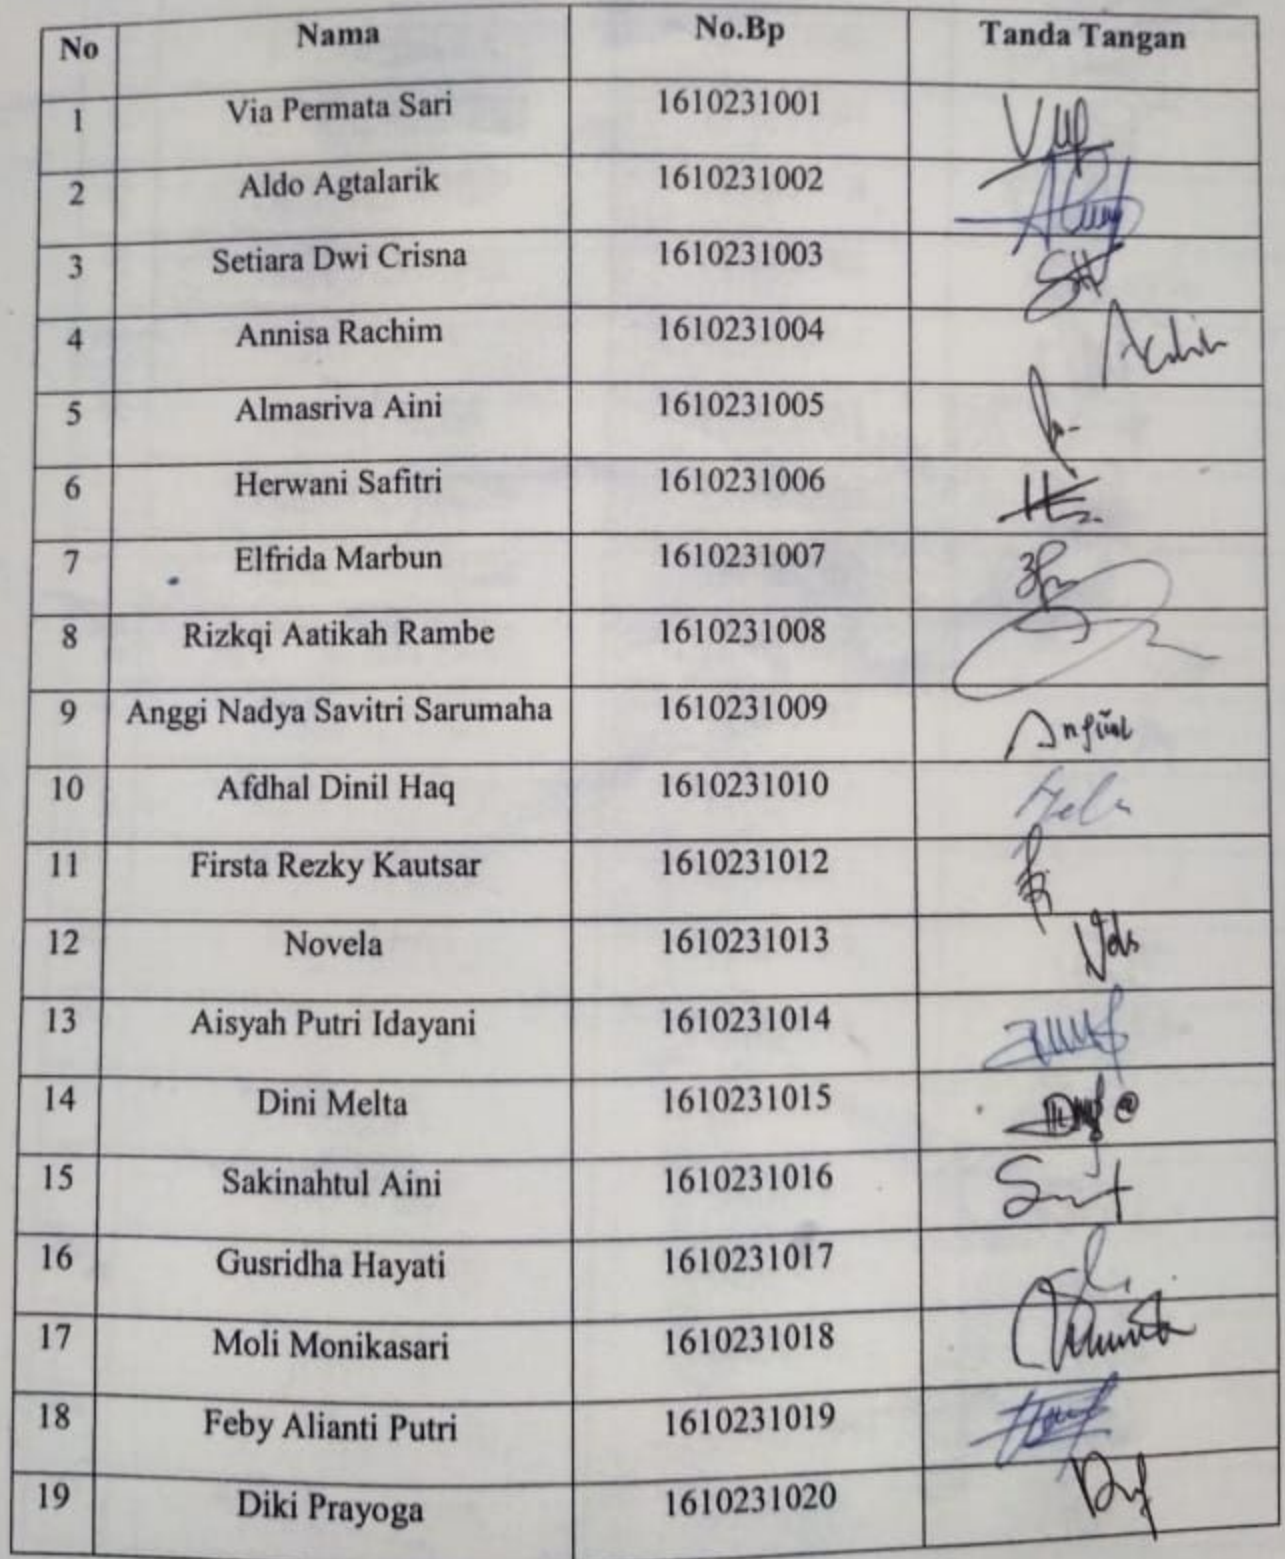 No Nama No.Bp Tanda Tangan
1 Via Permata Sari 1610231001
2 Aldo Agtalarik 1610231002
3 Setiara Dwi Crisna 1610231003
4 Annisa Rachim 1610231004
5 Almasriva Aini 1610231005
6 Herwani Safitri 1610231006
7 Elfrida Marbun 1610231007
8 Rizkqi Aatikah Rambe 1610231008
9 Anggi Nadya Savitri Sarumaha 1610231009
10 Afdhal Dinil Haq 1610231010
11 Firsta Rezky Kautsar 1610231012
12 Novela 1610231013
13 Aisyah Putri Idayani 1610231014
14 Dini Melta 1610231015
15 Sakinahtul Aini 1610231016
16 Gusridha Hayati 1610231017
17 Moli Monikasari 1610231018
18 Feby Alianti Putri 1610231019
19 Diki Prayoga 1610231020